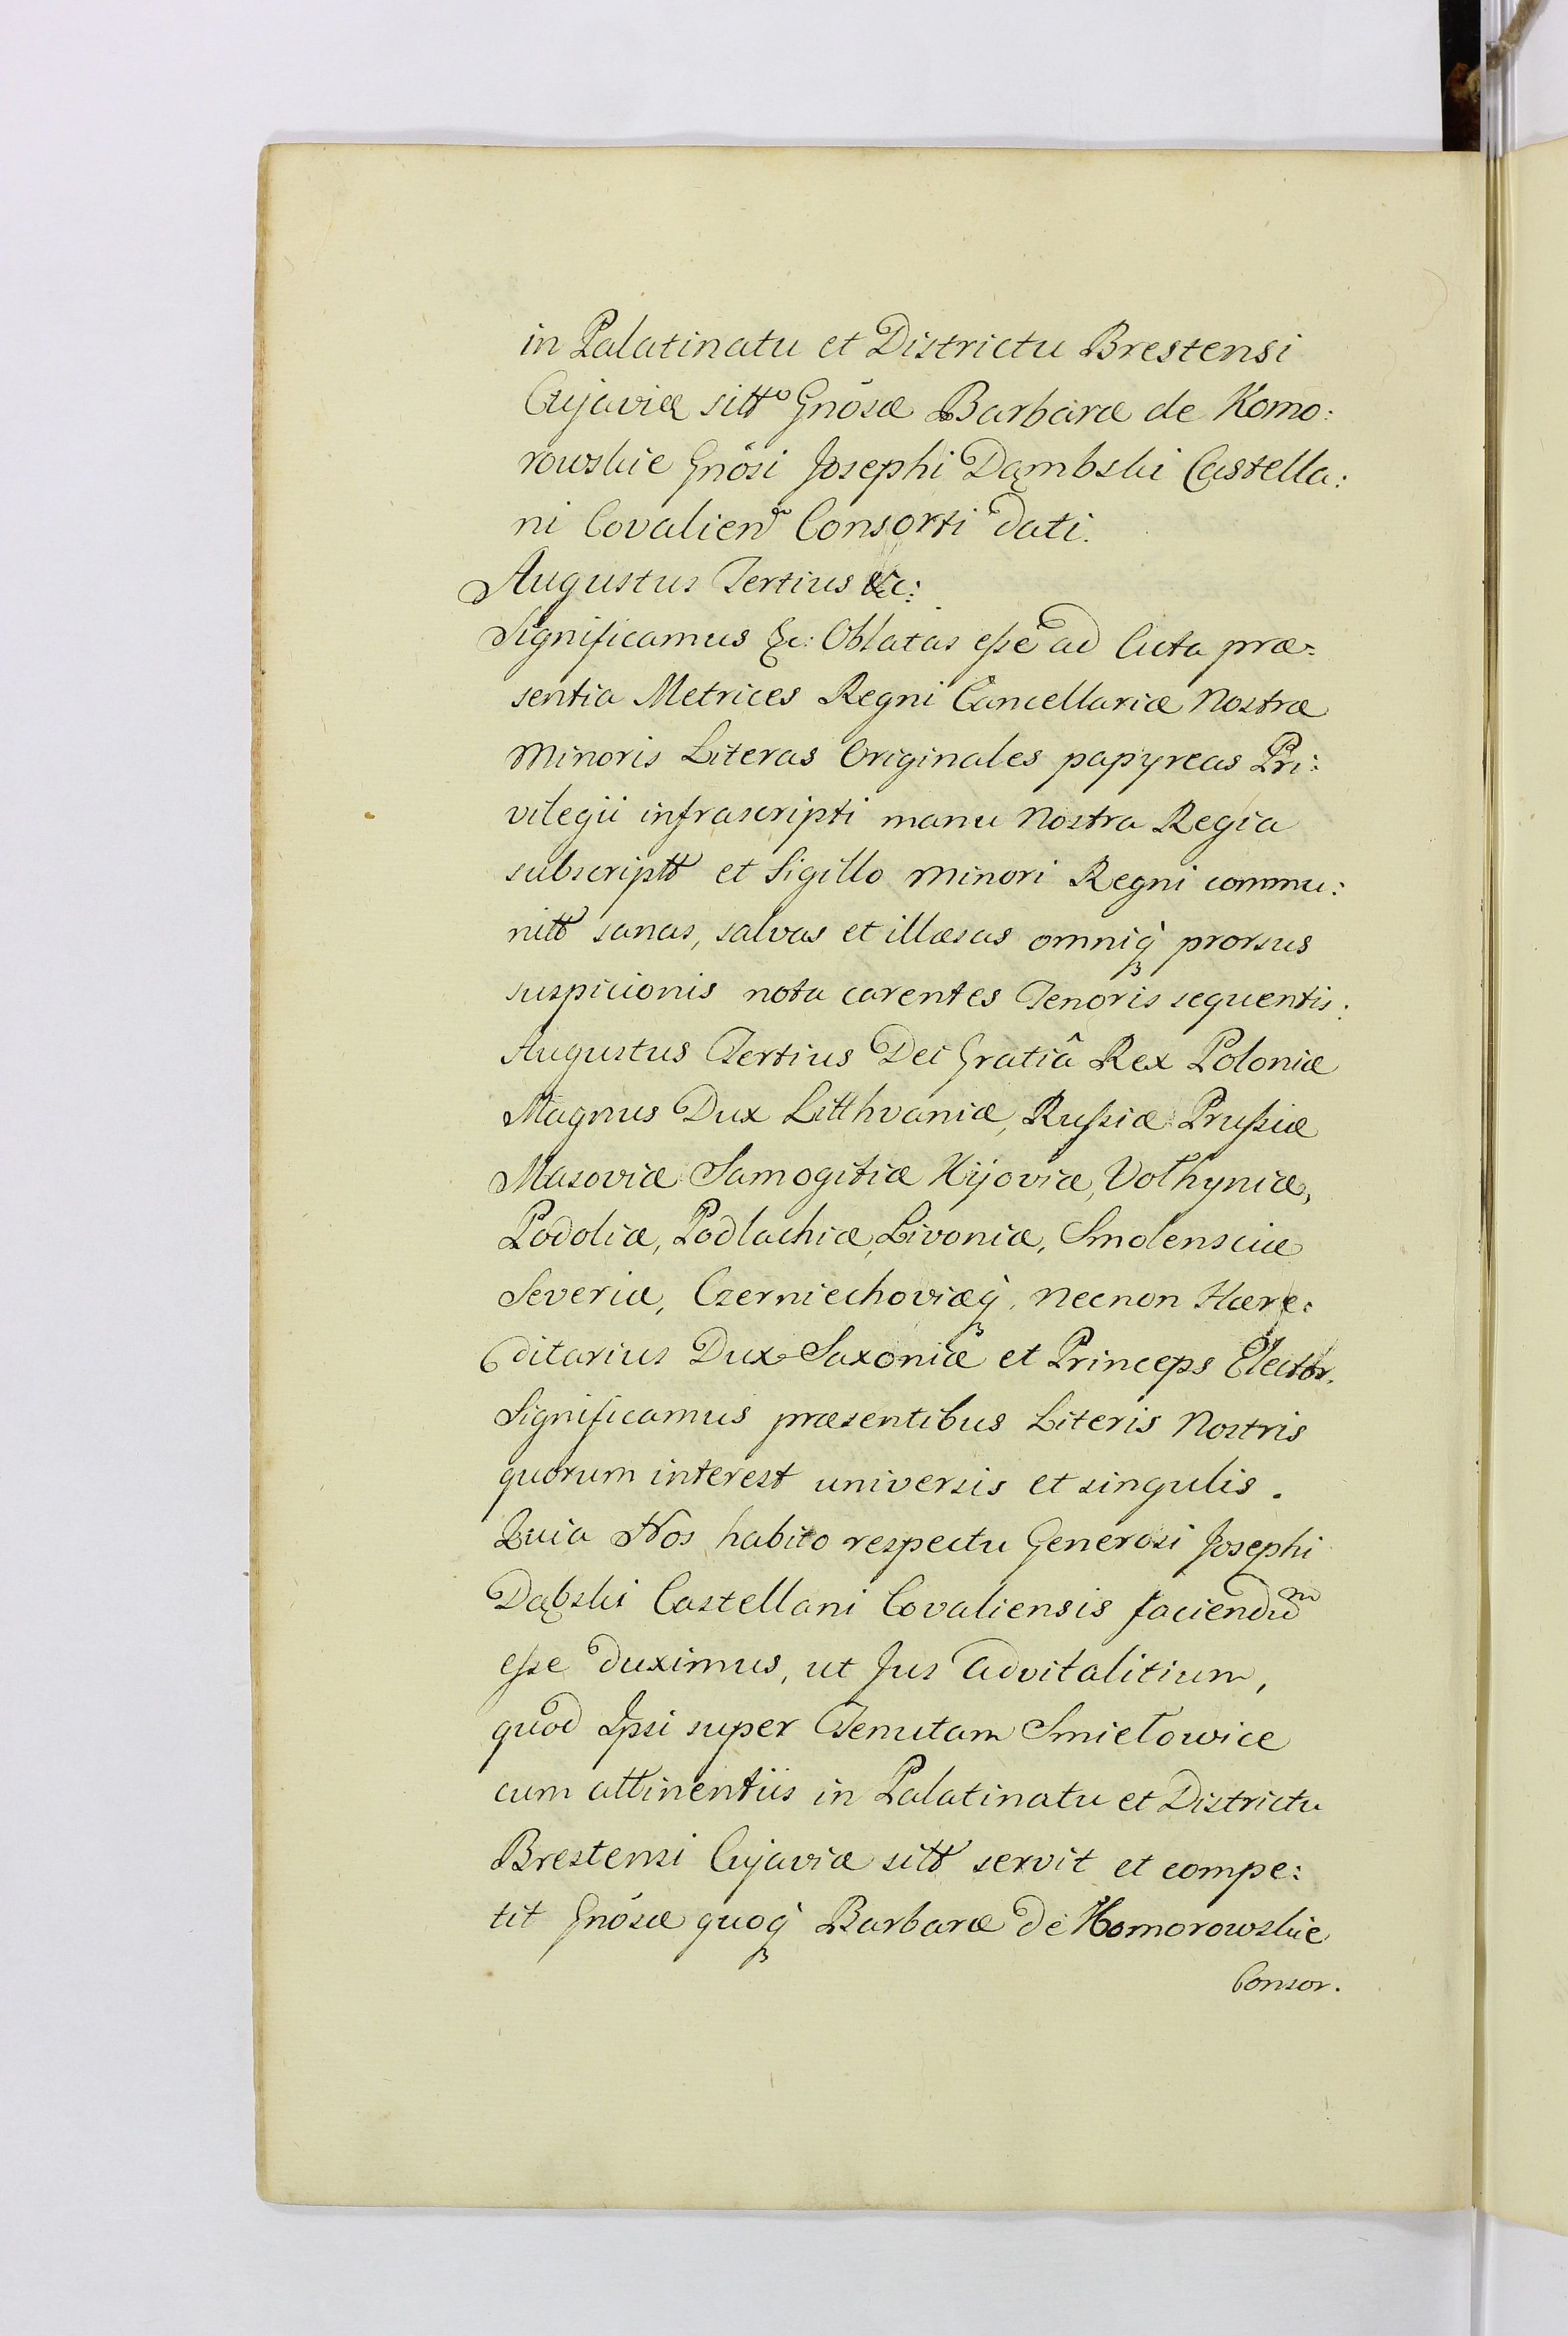 in Palatinatu et Districtu Brestensi
Cujaviæ sitto Gnosæ Barbaræ de Komo:
rowskie Gnosi Josephi Dąmbski Castella:
ni Covalien Consorti dati.
Augustus Tertius &c:
Significamus &c: Oblatas eſse ad Acta præ:
sentia Metrices Regni Cancellariæ Nostræ
Minoris Literas Originales papyreas Pri:
vilegii infrascripti manu Nostra Regia
subscriptt et Sigillo minori Regni commu:
nitt sanas, salvas et illæsas omniq́ꝫ prorsus
suspicionis nota carentes Tenoris sequentis:
Augustus Tertius Dei Gratiâ Rex Poloniæ
Magnus Dux Litthvaniæ, Ruſsiæ Pruſsiæ
Masoviæ Samogitiæ Kijoviæ, Volhyniæ,
Podoliæ, Podlachiæ, Livoniæ, Smolensciæ
Severiæ, Czerniechoviæq́ꝫ, necnon Hære:
ditarius Dux Saxoniæ et Princeps Elector.
Significamus præsentibus Literis Nostris
quorum interest universis et singulis.
Quia Nos habito respectu Generosi Josephi
Dąbski Castellani Covaliensis faciendum
eſse duximus, ut Jus Advitalitium,
quod Ipsi super Tenutam Smiełowice
cum attinentiis in Palatinatu et Districtu
Brestensi Cujaviæ sitt servit et compe:
tit Gnosæ quoq́ꝫ Barbaræ de Komorowskie
Consor.